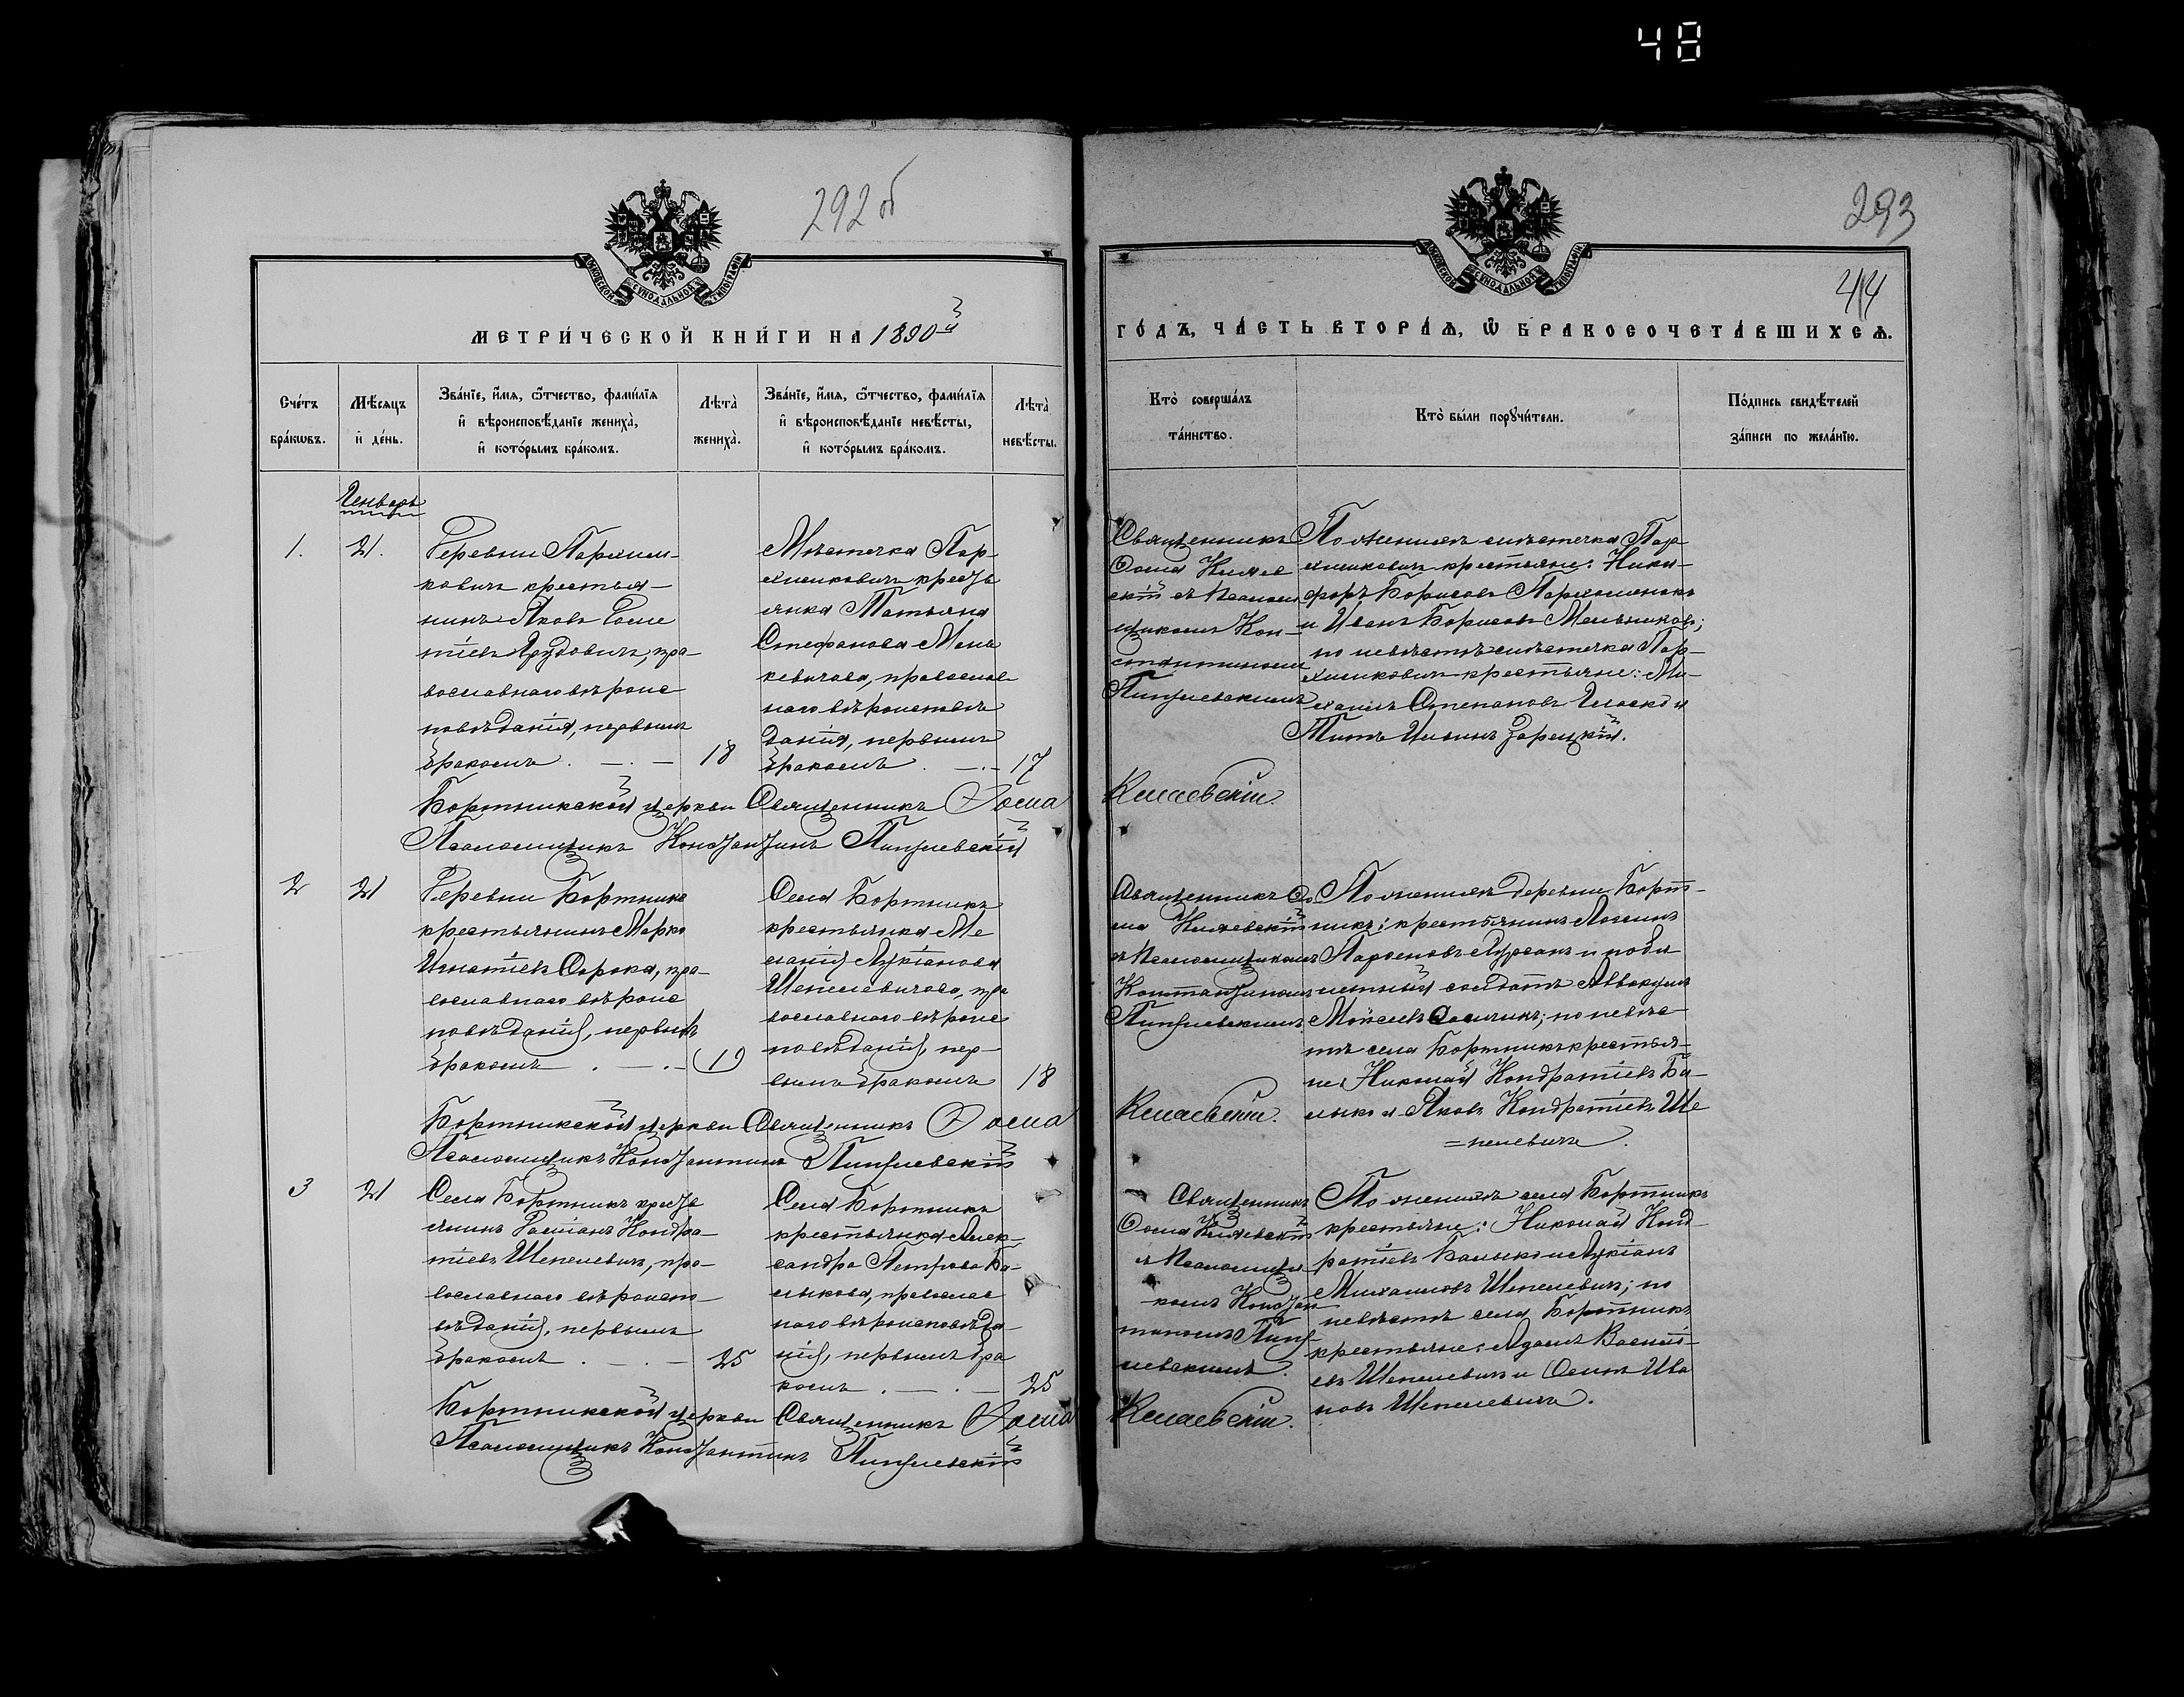 48
292 об
293
44
МОСКОВСКОЙ СѴНОДАЛЬНОЙ ТИПОГРАФІИ
МОСКОВСКОЙ СѴНОДАЛЬНОЙ ТИПОГРАФІИ
МЕТРИ́ЧЕСКОЙ КНИ́ГИ НА 1890й
ГО́ДЪ, ЧА́СТЬ ВТОРА́Ѧ, Ѽ БРАКОСОЧЕТА́ВШИХСѦ.
Сче́тъ бра́кѡвъ.
Мѣ́сѧцъ и҆ де́нь.
Зва́нїе, и҆́мѧ, ѻ҆́тчество, фами́лїѧ
и҆ вѣроисповѣ́данїе жениха̀,
и҆ кото́рымъ бра́комъ.
Лѣта̀ жениха̀.
Зва́нїе, и҆́мѧ, ѻ҆́тчество, фами́лїѧ
и҆ вѣроисповѣ́данїе невѣ́сты,
и҆ кото́рымъ бра́комъ.
Лѣта̀ невѣ́сты.
Кто̀ соверша́лъ
та́инство.
Кто̀ бы́ли порꙋчи́тели.
По́дпись свидѣ́телей
за́писи по жела́нїю.
Генварь
1.
21.
Деревни Пархим-
ковичъ крестья-
нинъ Яковъ
пра-
вославнаго вѣроис
повѣданія, первымъ
бракомъ
18
Мѣстечка Пар-
химковичъ кресть
янка Татьяна
Стефанова Мень
кевичова, православ
наго вѣроисповѣ
данія, первымъ
бракомъ
17
Священникъ
Ѳома Кмаев
скій съ Псалом
щикомъ Кон-
стантиномъ
По женихѣ мѣстечка Пар
химковичъ крестьяне: Ники-
форъ Борисовъ
и Иванъ Борисовъ Мельников;
по невѣстѣ мѣстечка Пар-
химковичъ крестьяне: Ми-
хаилъ Степановъ
Титъ Ильинъ Зарецкій.
Бортникской церкви Священникъ Ѳома
Кмаевскій.
Псаломщикъ Константинъ
2
21
Деревни Бортникъ
крестьянинъ Марко
Игнатіевъ Сорока, пра-
вославнаго вѣроис
повѣданія, первымъ
бракомъ
19
Села Бортникъ
крестьянка Ме
ланія Лукіанова
Шепелевичова, пра
вославнаго вѣроис
повѣданія, пер-
вымъ бракомъ
18
Священникъ Ѳо
ма Кмаевскій
съ Псаломщикомъ
Константиномъ
По женихѣ деревни Борт-
никъ: крестьянинъ Логинъ
Парѳеновъ
солдатъ Аввакумъ
по невѣс
тѣ села Бортникъ крестья-
не: Николай Кондратіевъ Ба-
лыко и Яковъ Кондратіевъ Ше
=пелевичъ.
Бортникской церкви Священникъ Ѳома
Кмаевскій.
Псаломщикъ Константинъ
3
21
Села Бортникъ кресть
янинъ Даміанъ Кондра-
тіевъ Шепелевичъ, пра-
вославнаго вѣроиспо-
вѣданія, первымъ
бракомъ
25
Села Бортникъ
крестьянка Алек-
сандра Петрова Ба-
лыкова, православ
наго вѣроисповѣда-
нія, первымъ бра
комъ
25
Священникъ
Ѳома Кмаевскій
съ Псаломщи
комъ Констан
тиномъ
По женихѣ села Бортникъ
крестьяне: Николай Конд-
ратіевъ Балыко и Лукіанъ
Михаиловъ Шепелевичъ; по
невѣстѣ села Бортникъ
крестьяне: Адамъ Василі-
евъ Шепелевичъ и Семенъ Ива
новъ Шепелевичъ.
Бортникской церкви Священникъ Ѳома
Кмаевскій.
Псаломщикъ Константинъ